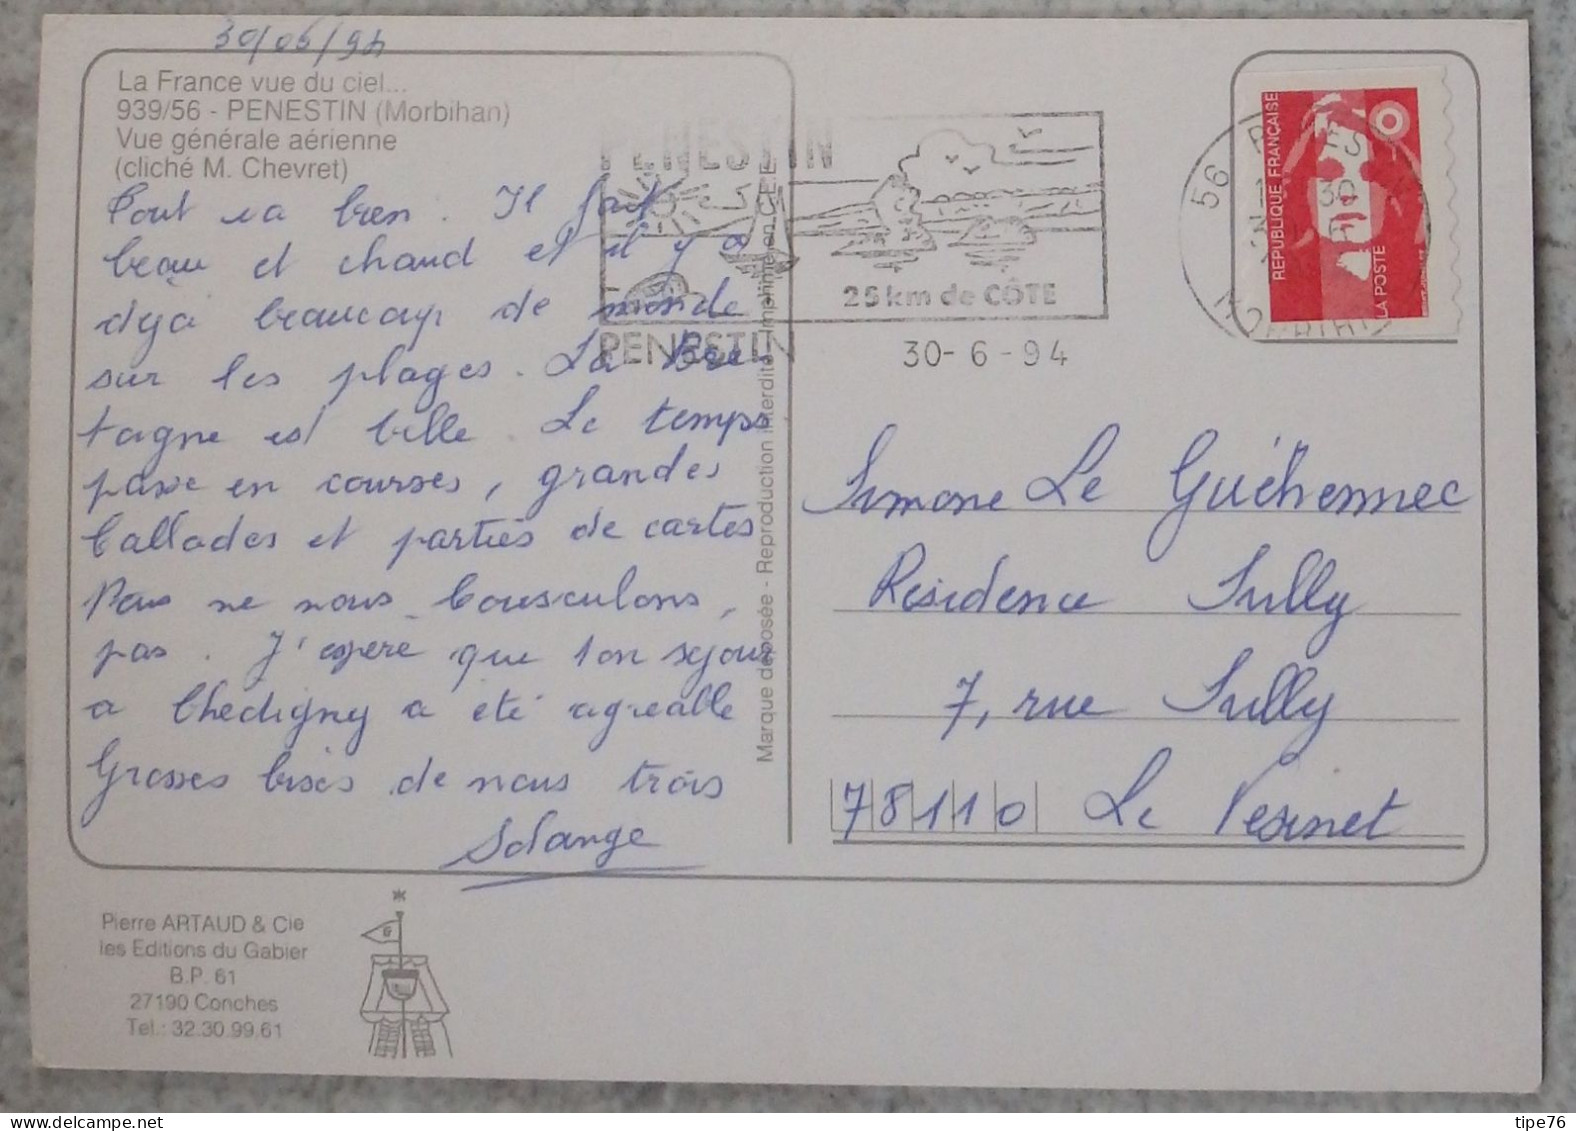 30/06/94
La France vue du ciel...
939/56 - PENESTIN (Morbihan)
Vue générale aérienne
(cliché M. Chevret)
Tout va bien. Il fait
beau et chaud et il y a
déjà beaucoup de monde
sur les plages. La Bre-
tagne est belle. Le temps
passe en courses, grandes
ballades et parties de cartes
Nous ne nous bousculons,
pas. J'espère que ton séjour
a Chedigny a été agréable
Grosses bises de nous trois
Solange
Pierre ARTAUD & Cie
les Editions du Gabier
B.P. 61
27190 Conches
Tel.: 32.30.99.61
G
Marque déposée - Reproduction interdite Imprimé en CEE
PENESTIN
25 km de CÔTE
PENESTIN
30-6-94
56
30
MORBIHAN
REPUBLIQUE FRANÇAISE
LA POSTE
Simone Le Guéhennec
Résidence Sully
7, rue Sully
78110 Le Vesinet
tipe76